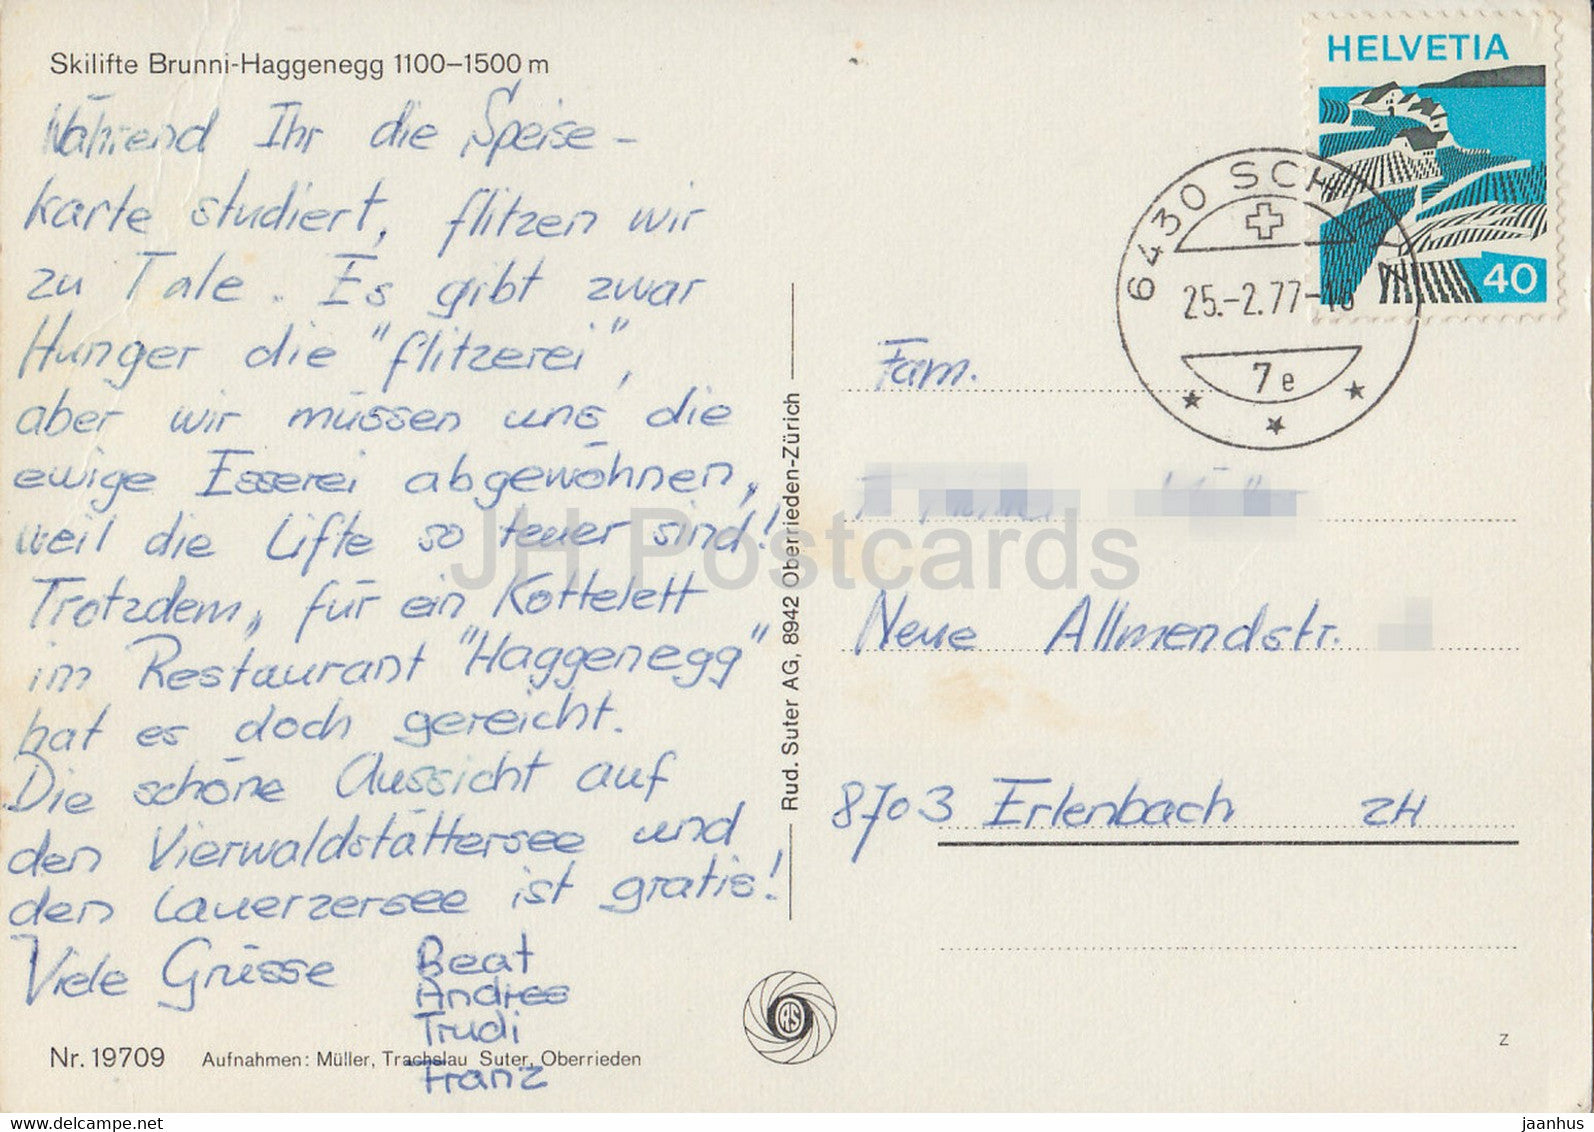 Skilifte Brunni-Haggenegg 1100–1500 m
Während Ihr die Speise-
karte studiert, flitzen wir
zu Tale. Es gibt zwar
Hunger die "flitzerei",
aber wir müssen uns die
ewige Esserei abgewöhnen,
weil die Lifte so teuer sind!
Trotzdem, für ein Kottelett
im Restaurant "Haggenegg"
hat es doch gereicht.
Die schöne Aussicht auf
den Vierwaldstättersee und
den Lauerzersee ist gratis!
Viele Grüsse Beat
Andrees
Trudi
Franz
Nr. 19709 Aufnahmen: Müller, Trachslau Suter, Oberrieden
Rud. Suter AG, 8942 Oberrieden-Zürich
RS
HELVETIA
40
6430 SCH
25.-2.77-
7e
Fam.
Neue Allmendstr.
8703 Erlenbach ZH
z
JH Postcards
jaanhus